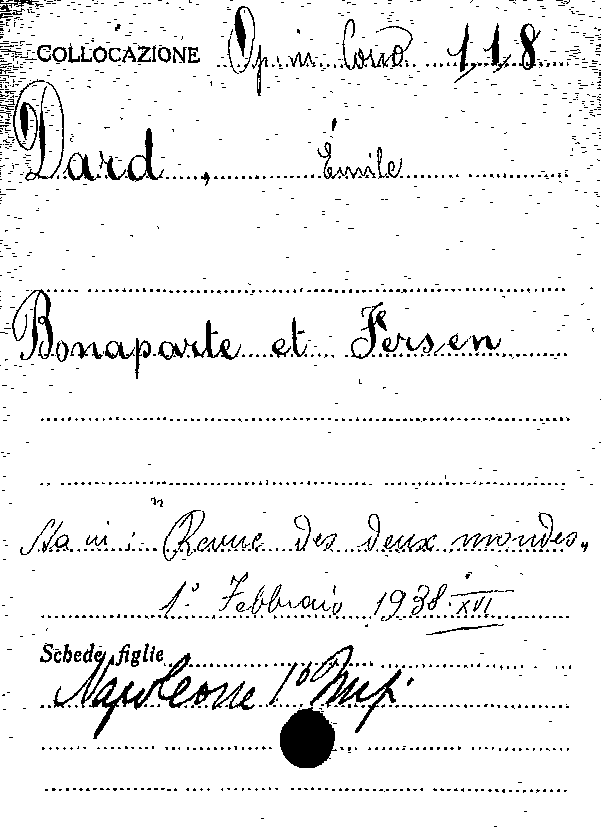 COLLOCAZIONE Opin. Corso 118
Dard, Émile
Bonaparte et Fersen
Sta in: "Revue des deux mondes„
1.° Febbraio 1938. XVI
Schede figlie
Napoleone I° Imp.